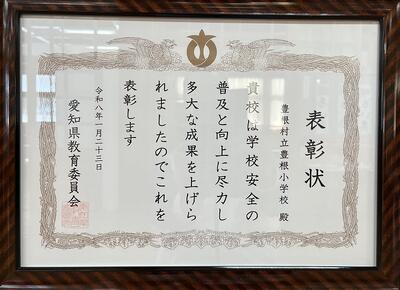 表彰状
豊根村立豊根小学校 殿
貴校は学校安全の
普及と向上に尽力し
多大な成果を上げら
れましたのでこれを
表彰します
令和八年一月二十三日
愛知県教育委員会